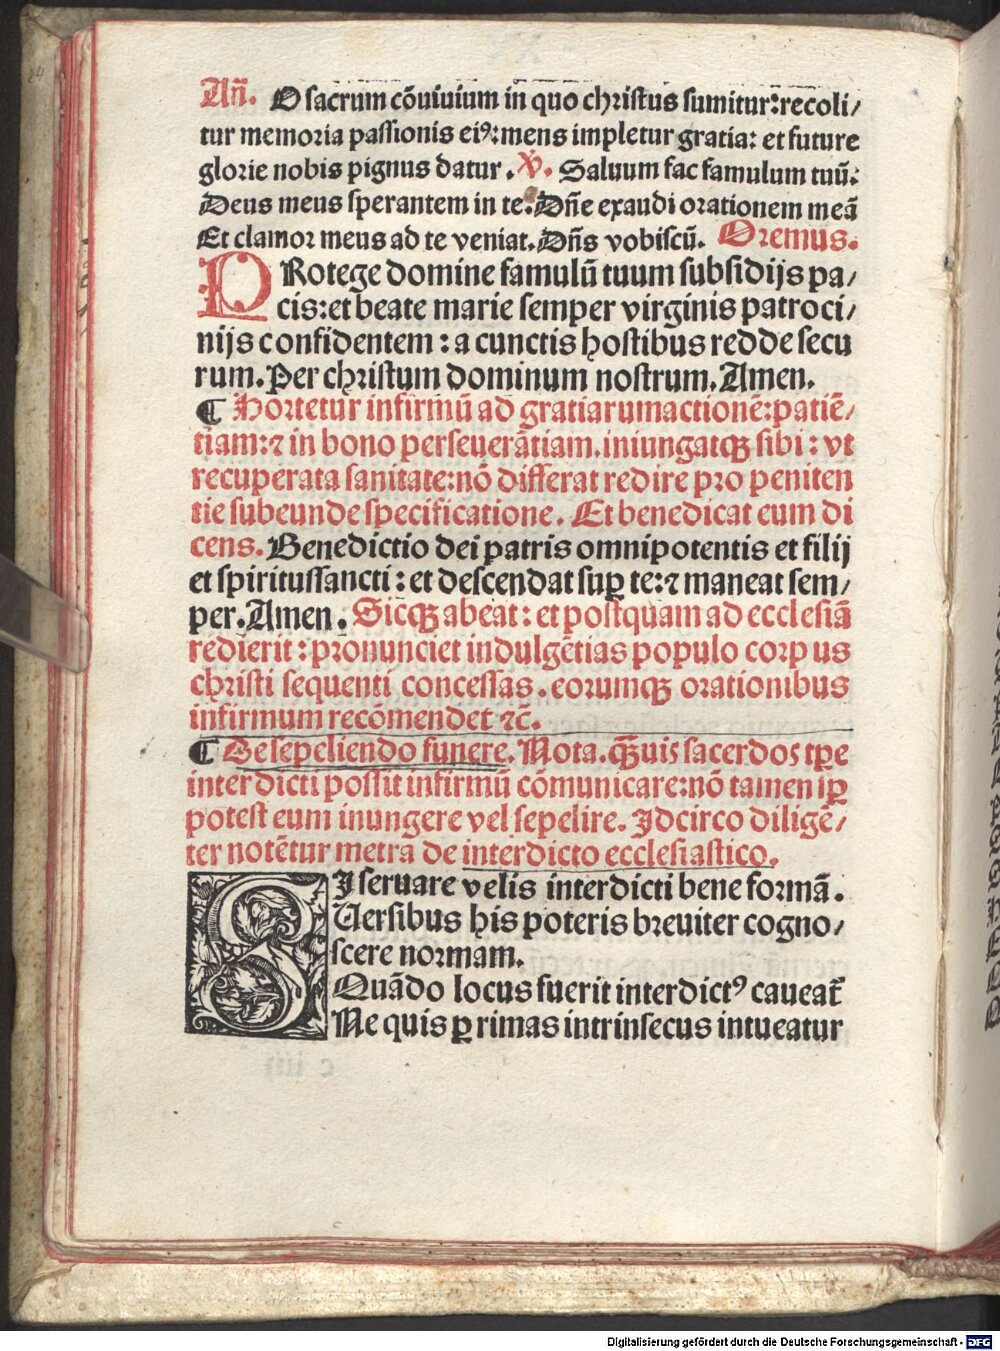 Añ. O sacrum cōuiuium in quo christus sumitur: recoli/
tur memoria passionis eiꝰ: mens impletur gratia: et future
glorie nobis pignus datur. ℣. Saluum fac famulum tuū:
Deus meus sperantem in te. Dñe exaudi orationem meā
Et clamor meus ad te veniat. Dñs vobiscū. Oremus.
PRotege domine famulū tuum subsidijs pa/
cis: et beate marie semper virginis patroci/
nijs confidentem: a cunctis hostibus redde secu
rum. Per christum dominum nostrum. Amen.
¶ Hortetur infirmū ad gratiarumactionē: patiē/
tiam: ⁊ in bono perseuerātiam. iniungatqꝫ sibi: vt
recuperata sanitate: nō differat redire pro peniten
tie subeunde specificatione. Et benedicat eum di
cens. Benedictio dei patris omnipotentis et filij
et spiritussancti: et descendat suꝑ te: ⁊ maneat sem/
per. Amen. Sicqꝫ abeat: et postquam ad ecclesiā
redierit: pronunciet indulgētias populo corpus
christi sequenti concessas. eorumqꝫ orationibus
infirmum recōmendet ⁊c̄.
¶ De sepeliendo funere. Nota. qꝫuis sacerdos tꝑe
interdicti possit infirmū cōmunicare: nō tamen iꝑ
potest eum inungere vel sepelire. Idcirco diligē/
ter notētur metra de interdicto ecclesiastico.
SI seruare velis interdicti bene formā.
Uersibus his poteris breuiter cogno/
scere normam.
Quādo locus fuerit interdictꝰ caueat̄
Ne quis ꝑ rimas intrinsecus intueatur
24
Digitalisierung gefördert durch die Deutsche Forschungsgemeinschaft - DFG